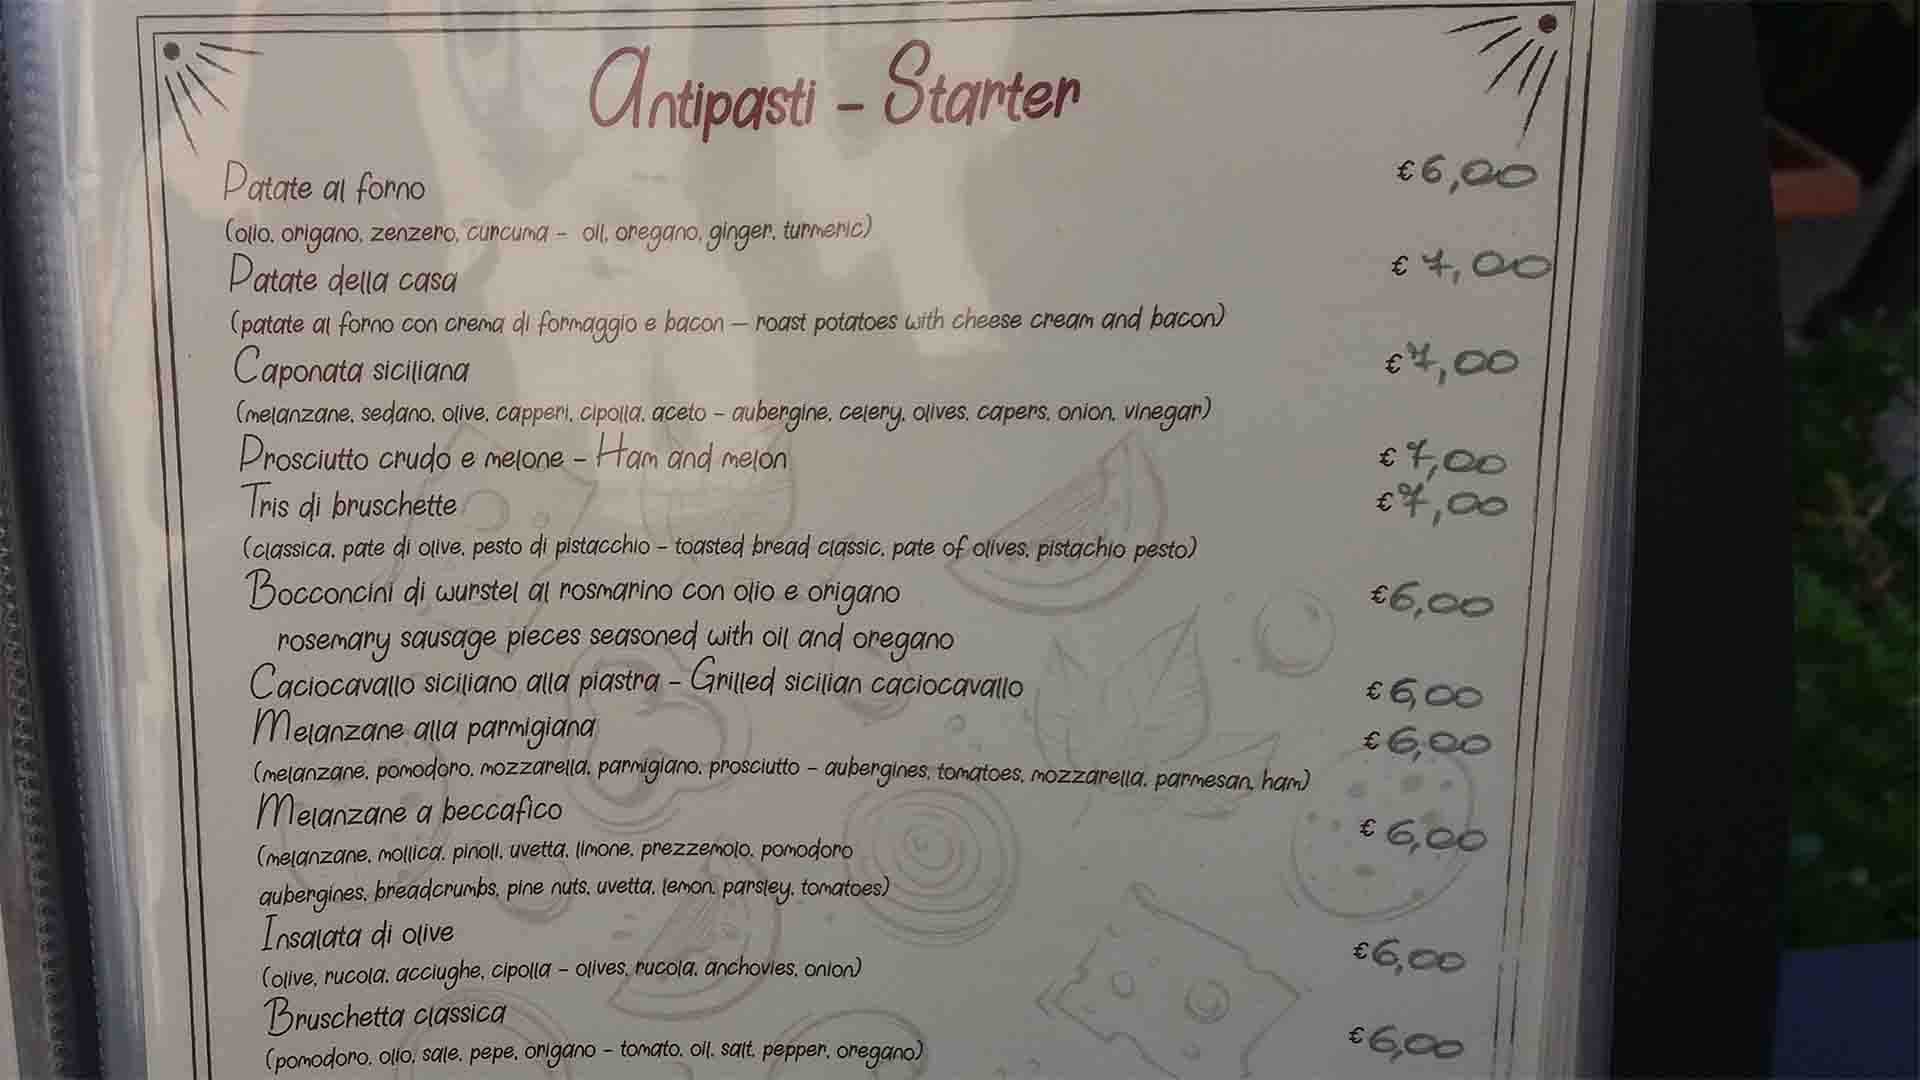 Antipasti - Starter
Patate al forno € 6,00
(olio, origano, zenzero, curcuma - oil, oregano, ginger, turmeric)
Patate della casa € 7,00
(patate al forno con crema di formaggio e bacon – roast potatoes with cheese cream and bacon)
Caponata siciliana € 7,00
(melanzane, sedano, olive, capperi, cipolla, aceto - aubergine, celery, olives, capers, onion, vinegar)
Prosciutto crudo e melone - Ham and melon € 7,00
Tris di bruschette € 7,00
(classica, pate di olive, pesto di pistacchio - toasted bread classic, pate of olives, pistachio pesto)
Bocconcini di wurstel al rosmarino con olio e origano € 6,00
rosemary sausage pieces seasoned with oil and oregano
Caciocavallo siciliano alla piastra - Grilled sicilian caciocavallo € 6,00
Melanzane alla parmigiana € 6,00
(melanzane, pomodoro, mozzarella, parmigiano, prosciutto - aubergines, tomatoes, mozzarella, parmesan, ham)
Melanzane a beccafico € 6,00
(melanzane, mollica, pinoli, uvetta, limone, prezzemolo, pomodoro
aubergines, breadcrumbs, pine nuts, uvetta, lemon, parsley, tomatoes)
Insalata di olive € 6,00
(olive, rucola, acciughe, cipolla - olives, rucola, anchovies, onion)
Bruschetta classica € 6,00
(pomodoro, olio, sale, pepe, origano - tomato, oil, salt, pepper, oregano)